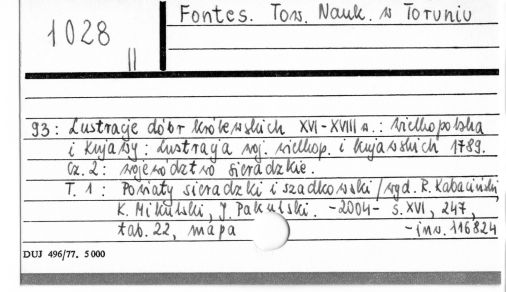 1028
II
Fontes. Tow. Nauk. w Toruniu
93: Lustracje dóbr królewskich XVI-XVIII w.: Wielkopolska
i Kujawy: Lustracja woj. wielkop. i kujawskich 1789.
Cz. 2: województwo sieradzkie.
T. 1: Powiaty sieradzki i szadkowski / wyd. R. Kabaciński,
K. Mikulski, J. Pakulski. -2004- s. XVI, 247,
tab. 22, mapa -inw. 116824
DUJ 496/77. 5000